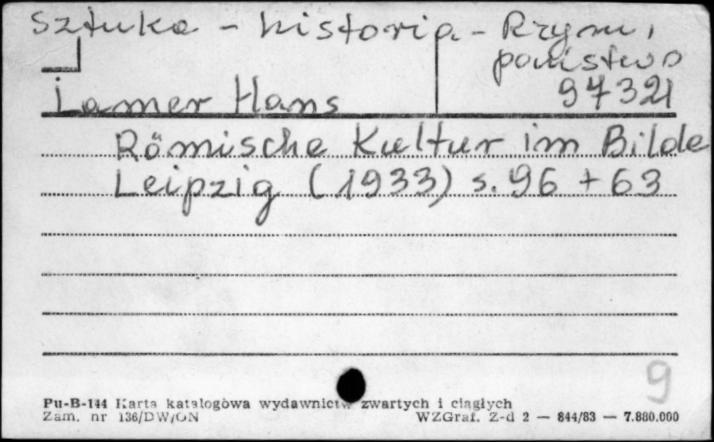 Sztuka - historia - Rzym,
państwo
97321
Lamer Hans
Römische Kultur im Bilde
Leipzig (1933) s. 96 + 63
9
Pu-B-144 Karta katalogowa wydawnictw zwartych i ciągłych
Zam. nr 136/DW/ON WZGraf. Z-d 2 — 844/83 — 7.880.000